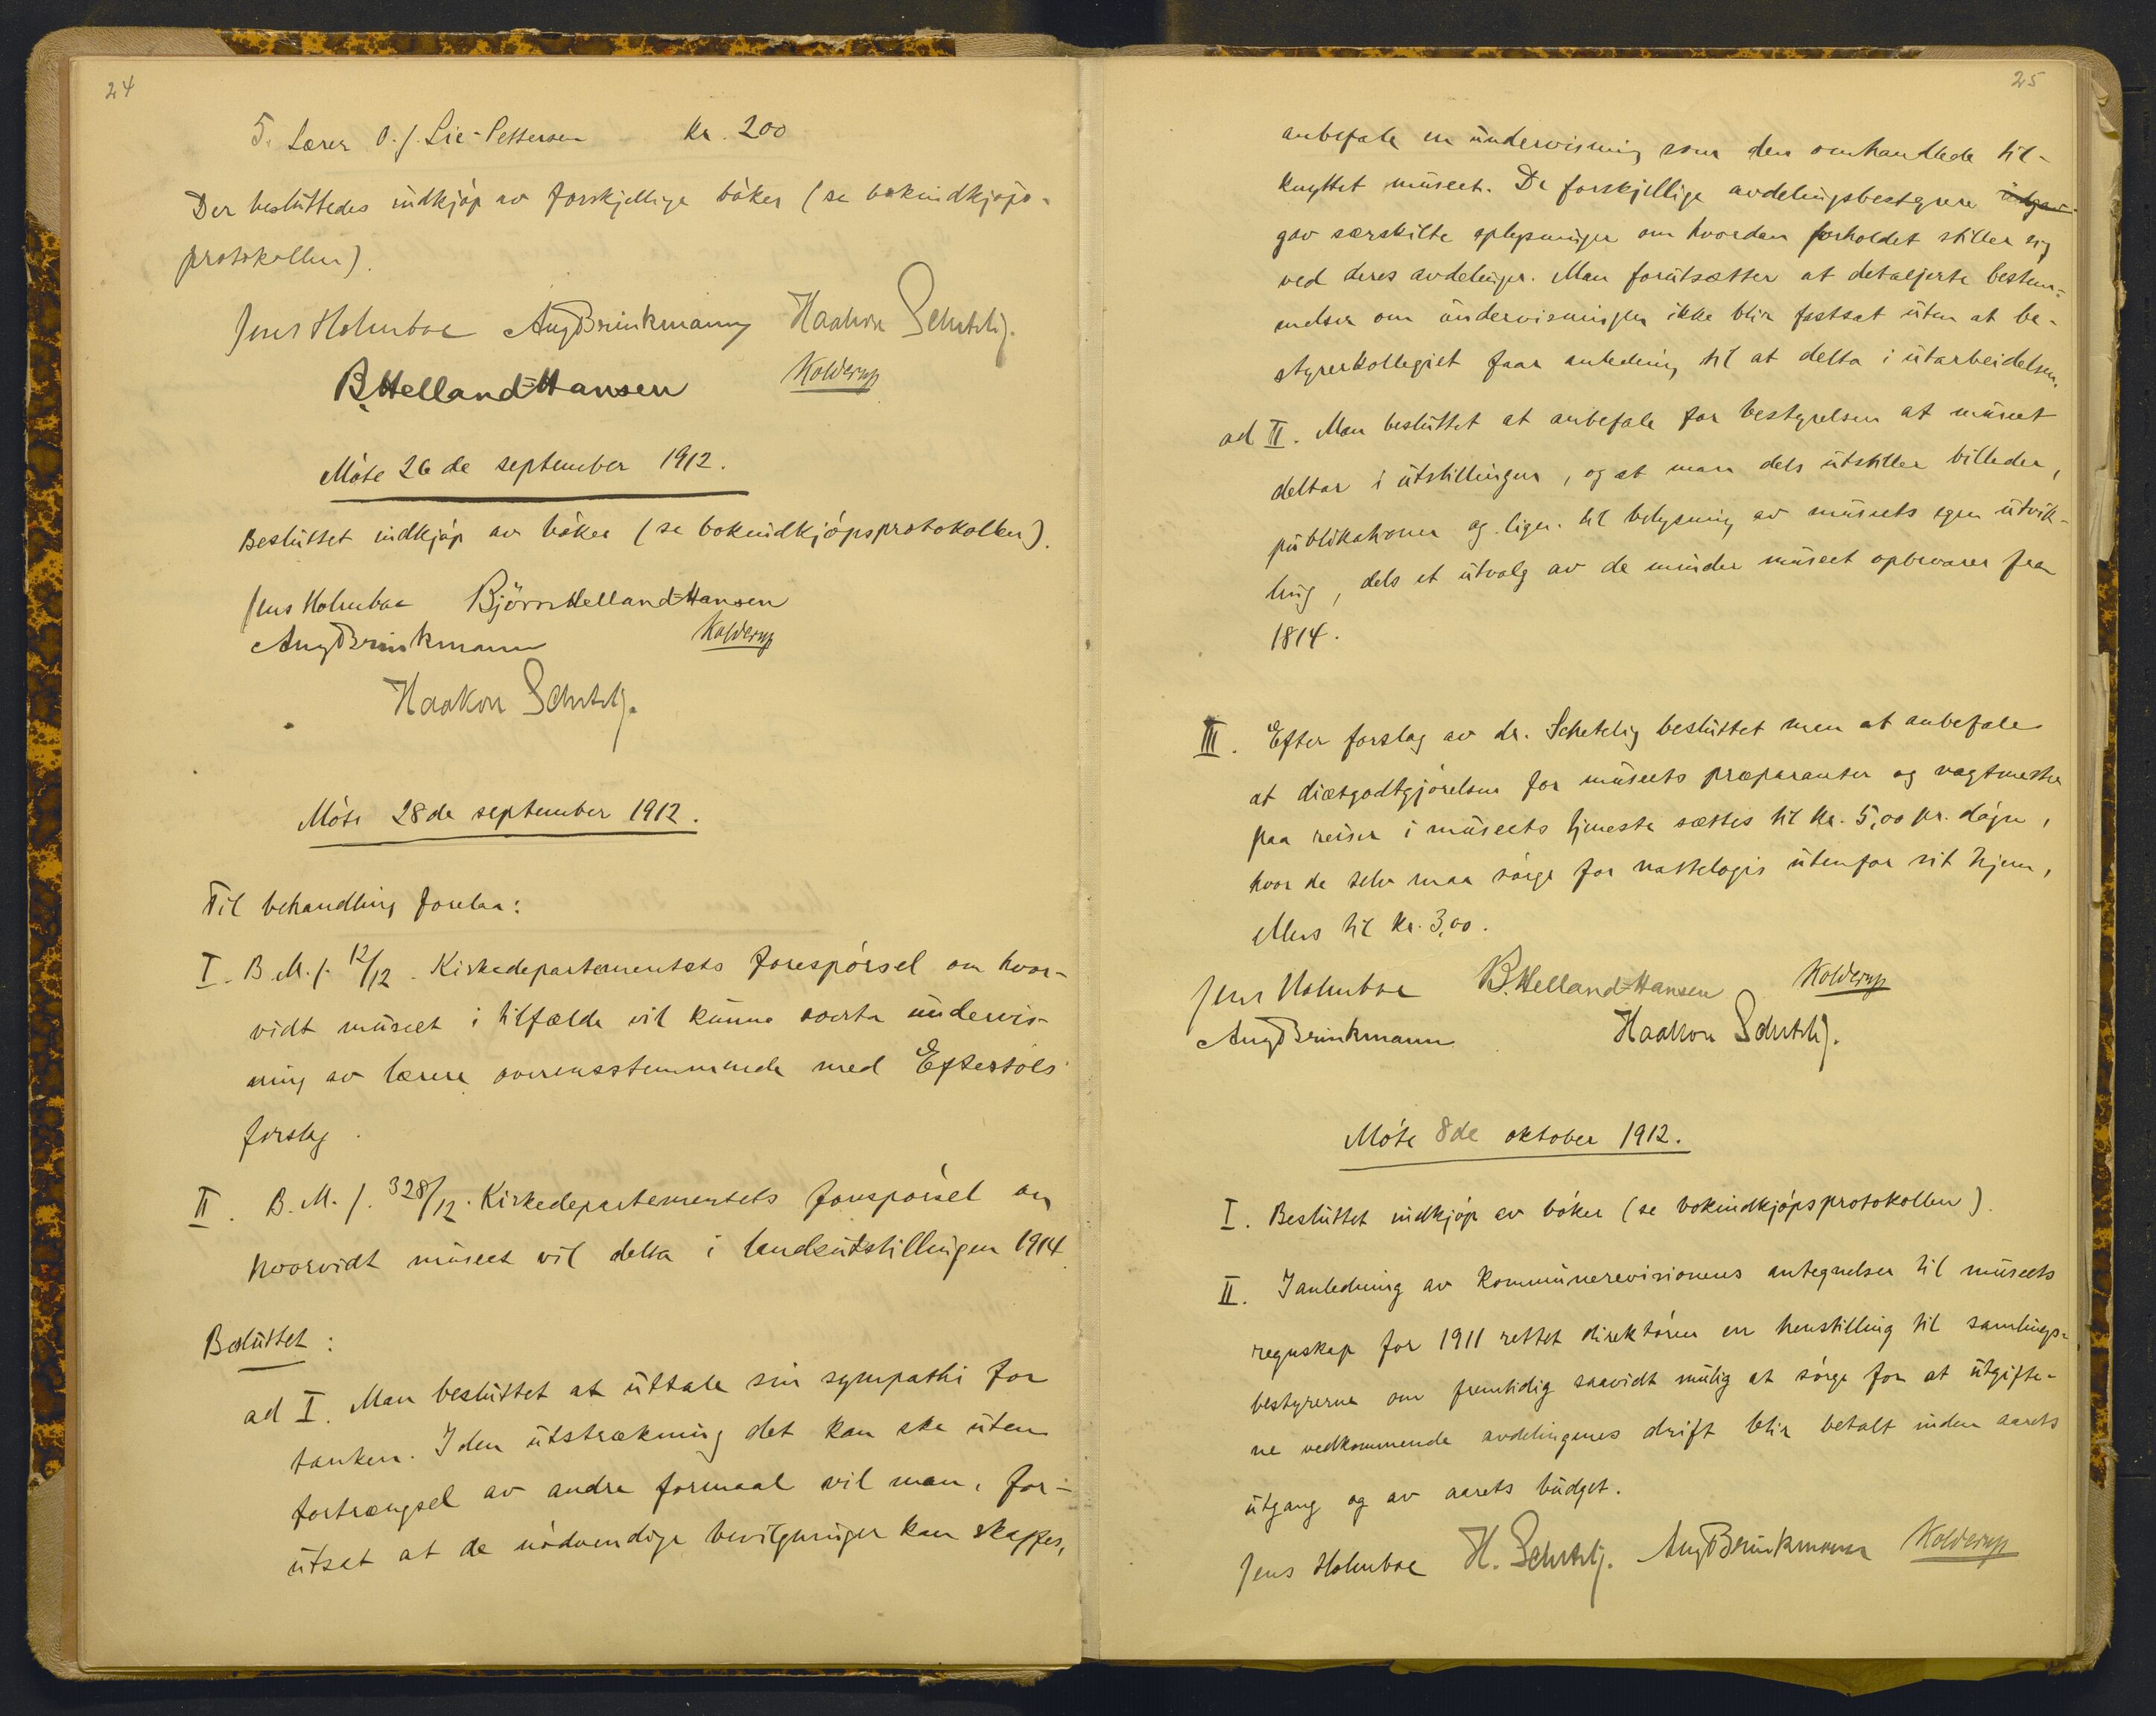 24
5. Lærer O. J. Lie-Pettersen kr. 200
Der besluttedes indkjøp av forskjellige bøker (se bokindkjøps-
protokollen).
Jens Holmboe Aug Brinkmann Haakon Schetelig.
B. Helland-Hansen Kolderup
Møte 26de september 1912.
Besluttet indkjøp av bøker (se bokindkjøpsprotokollen).
Jens Holmboe Björn Helland-Hansen
Aug Brinkmann Kolderup
Haakon Schetelig.
Møte 28de september 1912.
Til behandling forelaa:
I. B. M. J. 12/12. Kirkedepartementets forespørsel om hvor-
vidt museet i tilfælde vil kunne overta undervis-
ning av lærere overensstemmende med Eftestöls
forslag.
II. B. M. J. 328/12. Kirkedepartementets forespørsel om
hvorvidt museet vil delta i landsutstillingen 1914.
Besluttet:
ad I. Man besluttet at uttale sin sympathi for
tanken. I den utstrækning det kan ske uten
fortrængsel av andre formaal vil man, for-
utsat at de nødvendige bevilgninger kan skaffes,
25
anbefale en undervisning som den omhandlede til-
knyttet museet. De forskjellige avdelingsbestyrere utgav
gav særskilte oplysninger om hvordan forholdet stiller sig
ved deres avdelinger. Man forutsætter at detaljerte bestem-
melser om undervisningen ikke blir fastsat uten at be-
styrerkollegiet faar anledning til at delta i utarbeidelsen.
ad II. Man besluttet at anbefale for bestyrelsen at museet
deltar i utstillingen, og at man dels utstiller billeder,
publikationer og lign. til belysning av museets egen utvik-
ling, dels et utvalg av de minder museet opbevarer fra
1814.
III. Efter forslag av dr. Schetelig besluttet man at anbefale
at diætgodtgjørelsen for museets præparanter og vagtmester
paa reiser i museets tjeneste sættes til kr. 5,00 pr. døgn,
hvor de selv maa sørge for nattelogis utenfor sit hjem,
ellers til kr. 3,00.
Jens Holmboe B. Helland-Hansen Kolderup
Aug Brinkmann Haakon Schetelig.
Møte 8de oktober 1912.
I. Besluttet indkjøp av bøker (se bokindkjøpsprotokollen).
II. I anledning av kommunerevisionens antegnelser til museets
regnskap for 1911 rettet direktøren en henstilling til samlings-
bestyrerne om fremtidig saavidt mulig at sørge for at utgifte-
ne vedkommende avdelingenes drift blir betalt inden aarets
utgang og av aarets budget.
Jens Holmboe H. Schetelig. Aug Brinkmann Kolderup